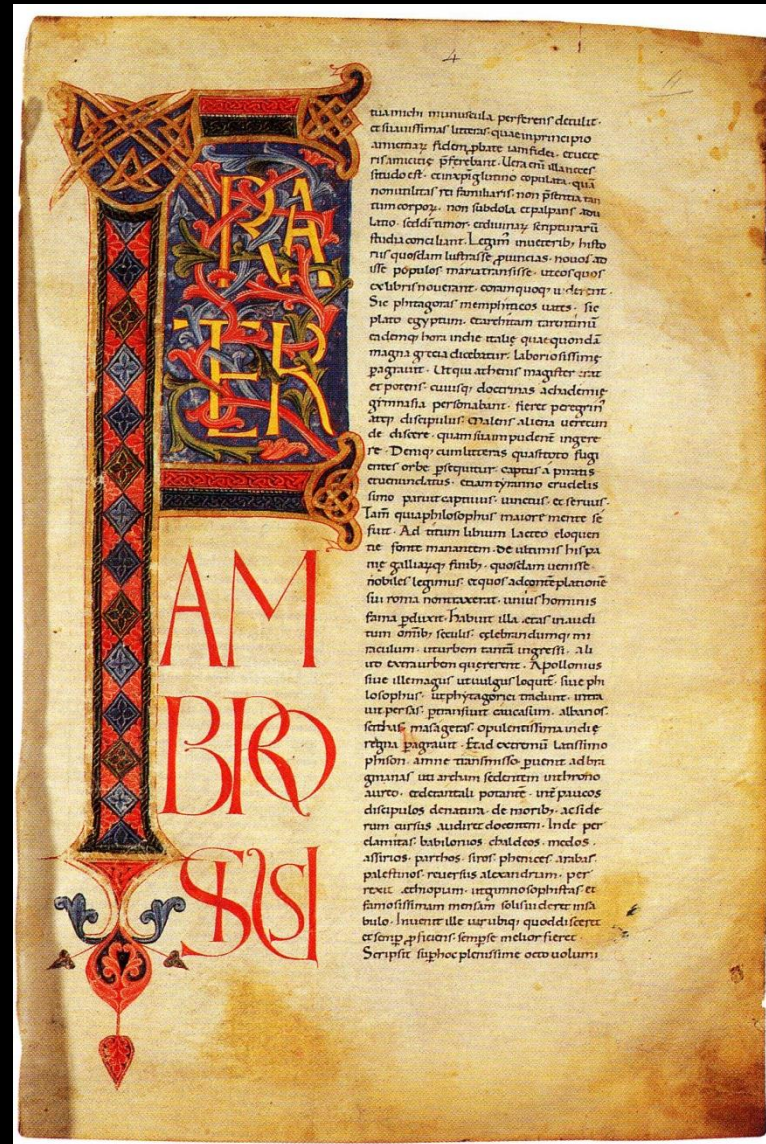 4
FRATER
AM
BRO
SIUS
tua michi munuscula perferens detulit·
et suauissimas litteras· quae in principio
amicitiaꝝ fidem ꝓbate iam fidei· et ueте
ris amicitię p̄ferebant· Uera enī illa neces
situdo est· et in xp̄i glutino copulata· quā
non utilitas rei familiaris· non p̄sentia tan
tum corpoꝝ· non subdola et palpans adu
latio· sed dī timor· et diuinaꝝ scripturarū
studia conciliant· Legim᾿ in ueterib; histo
riis quosdam lustrasse ꝓuincias· nouos ad
isse populos maria transisse· ut eos quos
ex libris nouerant· coram quoq; uiderent·
Sic phitagoras memphiticos uates· sic
plato egyptum· et architam tarentinū
eademq; hora indie italię quae quondā
magna grecia dicebatur· laboriosissimę
ꝑagrauit· Ut qui athenis magister erat
et potens· cuiusq; doctrinas achademię
gimnasia personabant· fieret peregrin᾿
atq; discipulus· Malens aliena uerecun
de discere· quam sua impudent̄ ingere
re· Deniq; cum litteras quasi toto fugi
entes orbe ꝑsequitur· captus a piratis
et uenundatus· etiam tyranno crudelis
simo paruit captiuus· uinctus· et seruus·
Tam̄ quia philosophus maiore mente se
fuit· Ad titum liuium lacteo eloquen
tie fonte manantem· de ultimis hispa
nię galliaꝝq; finib; quosdam uenisse
nobiles legimus· et quos ad contēplationē
sui roma non traxerat· unius hominis
fama ꝑduxit· habuit illa ętas inaudi
tum omīb; seculis· cęlebrandumq; mi
raculum· ut urbem tantā ingressi· ali
ud extra urbem quęrerent· Apollonius
siue ille magus ut uulgus loquit̄· siue phi
losophus· ut phytagorici tradunt· intra
uit persas· ꝑtransiuit caucasum· albanos·
scithas· masagetas· opulentissima indię
regna ꝑagrauit· Et ad extremū latissimo
phison· amne transmisso· ꝑuenit ad bra
gmanas· uti archam sedentem in throno
aureo· et de tantali potantē· int̄ paucos
discipulos de natura· de morib; ac side
rum cursus audiret docentem· Inde per
elamitas· babilonios· chaldeos· medos·
assirios· parthos· siros· phenices· arabas·
palestinos· reuersus alexandriam· per
rexit ęthiopum· ut gimnosophistas et
famosissimam mensam solis uideret in sa
bulo· Inuenit ille uir ubiq; quod disceret
et semꝑ ꝓficiens· semp̄ se melior fieret
Scripsit suꝑ hoc plenissime octo uolumi